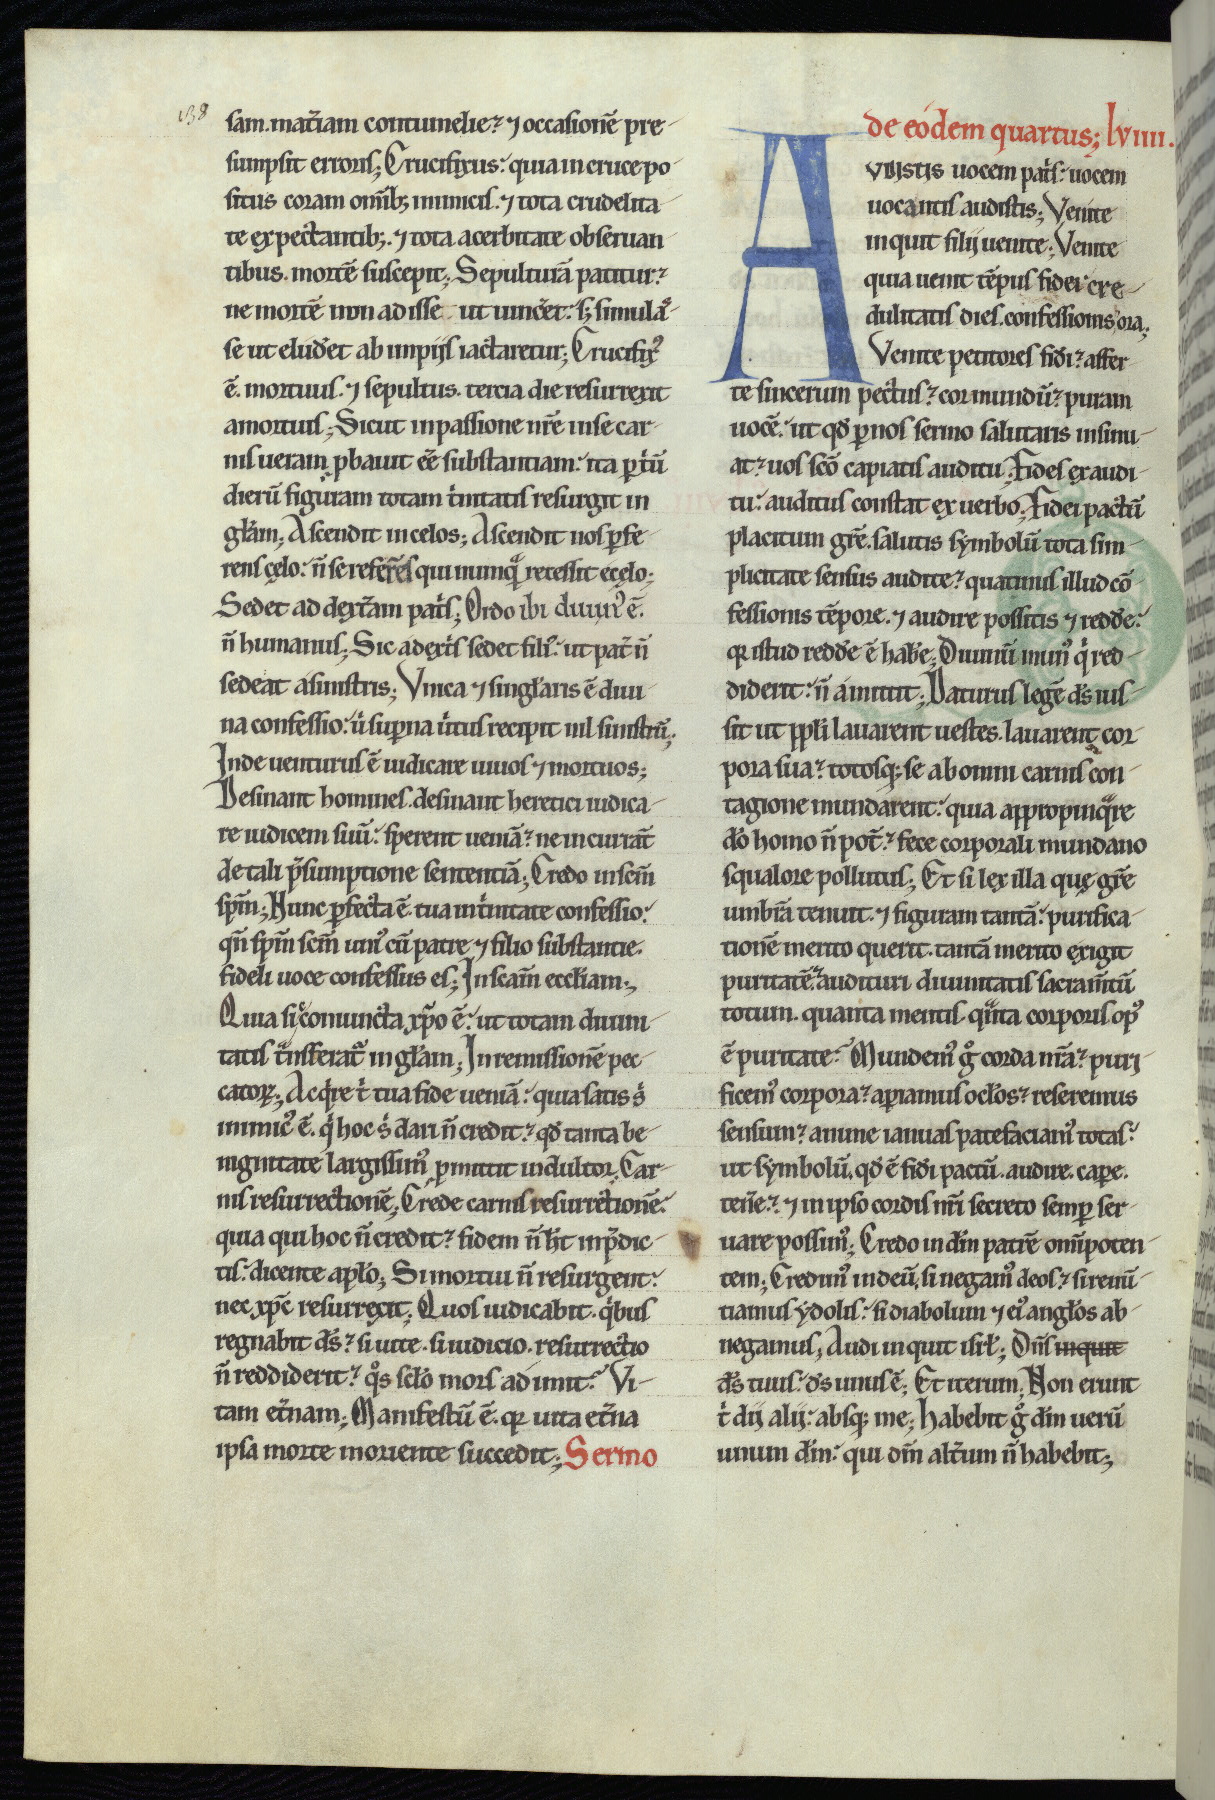 138
sam. mat̄iam contumelie? ⁊ occasionē pre-
sumpsit erroris; Crucifixus: quia in cruce po-
situs coram omīb; inimicis. ⁊ tota crudelita-
te expectantib;. ⁊ tota acerbitate obseruan-
tibus. mortē suscepit; Sepulturā patitur?
ne mortē non adisse ut uinc̄et: s; simula-
se ut elud̄et ab impijs iactaretur; Crucifix᷒
ē. mortuus. ⁊ sepultus. tercia die resurrexit
a mortuis; Sicut in passione nr̄e in se car-
nis ueram ꝓbauit eē substantiam: ita ꝑ t̄ū
dierū figuram totam t̄nitatis resurgit in
gl̄am; Ascendit in celos; Ascendit nos ꝑfe-
rens cęlo: n̄ se referēs qui numq̄ recessit e cęlo;
Sedet ad dext̄am pat̄s; Ordo ibi diuin᷒ ē.
n̄ humanus; Sic a dext̄is sedet fili᷒: ut pat̄ n̄
sedeat a sinistris; Vnica ⁊ singl̄aris ē diui-
na confessio: ū supna ūtus recipit nil sinistrū;
Inde uenturus ē iudicare uiuos ⁊ mortuos;
Desinant homines. desinant heretici iudica-
re iudicem suū: sperent ueniā? ne incurrāt
de tali p̄sumptione sententiā; Credo in scm̄
spm̄; Nunc ꝑfecta ē tua in t̄nitate confessio:
qn̄ spm̄ scm̄ uni᷒ cū patre ⁊ filio substantie.
fideli uoce confessus es; In scam̄ eccl̄iam;
Quia sic coniuncta xp̄o ē: ut totam diuini-
tatis t̄nsferat̄ in gl̄am; In remissionē pec-
catoꝝ; Acq̄re t̄ tua fide ueniā: quia satis s̄
inimic᷒ ē. q̄ hoc s̄ dari n̄ credit? qd̄ tanta be-
nignitate largissim᷒ ꝑmittit indultor. Car-
nis resurrectionē; Crede carnis resurrectionē:
quia qui hoc n̄ credit? fidem n̄ h̄t in p̄dic-
tis: dicente apl̄o; Si mortui n̄ resurgent:
nec xp̄c resurrexit; Quos iudicabit. q̄bus
regnabit ds̄? si uite. si iudicio. resurrectio
n̄ reddiderit? q̊s scl̄o mors adimit: Vi-
tam et̄nam; Manifestū ē. qꝛ uita et̄na
ipsa morte moriente succedit; Sermo
de eódem quartus; lviiii.
AVDISTIS uocem pat̄s: uocem
uocantis audistis; Venite
inquit filij uenite; Venite
quia uenit tēpus fidei cre-
dulitatis dies. confessionis ora;
Venite petitores fid̄i? affer-
te sincerum pectus? cor mundū? puram
uocē: ut qd̄ ꝑ nos sermo salutaris insinu-
at? uos scō capiatis auditu; Fides ex audi-
tu: auditus constat ex uerbo; Fidei pactū
placitum gr̄e. salutis symbolū tota sim-
plicitate sensus audite? quatinus illud cō-
fessionis tēpore. ⁊ audire possitis ⁊ redd̄e:
qꝛ istud redd̄e ē hab̄e; Diuinū mun᷒ q̄ red-
diderit: n̄ amittit; Daturus legē ds̄ ius-
sit ut ppl̄i lauarent uestes. lauarent cor-
pora sua? totosq; se ab omni carnis con-
tagione mundarent: quia appropinq̄re
dō homo n̄ pot̄? fece corporali mundano
squalore pollutus; Et si lex illa quę gr̄e
umbrā tenuit. ⁊ figuram tantā: purifica-
tionē merito querit. tantā merito exigit
puritatē? audituri diuinitatis sacram̄tū
totum. quanta mentis. q̄nta corporis op᷒
ē puritate? Mundem᷒ g̊ corda nr̄a? puri-
ficem᷒ corpora? aꝑiamus ocl̄os? reseremus
sensum? anime ianuas patefaciam᷒ totas:
ut symbolū. qd̄ ē fid̄i pactū. audire. cape.
ten̄e? ⁊ in ipso cordis nr̄i secreto semꝑ ser-
uare possim᷒; Credo in dm̄ patrē omīpoten-
tem; Credim᷒ in deū. si negam᷒ deos? si renū-
tiamus ydolis: si diabolum ⁊ ei᷒ angl̄os ab-
negamus; Audi inquit isrl̄; Dn̄s inquit
ds̄ tuus: ds̄ unus ē; Et iterum; Non erunt
t̄ dij alij: absq; me; habebit g̊ dm̄ uerū
unum dm̄: qui dm̄ alt̄um n̄ habebit;